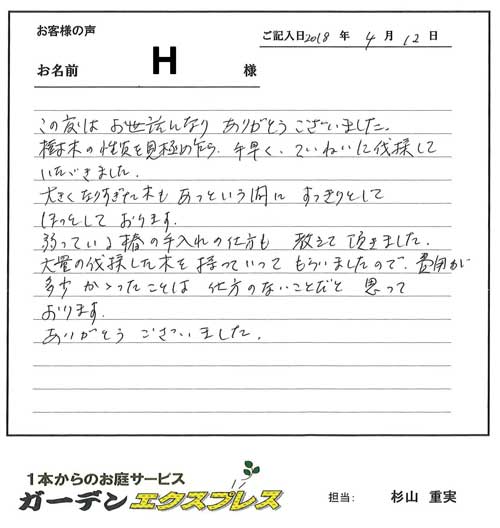 お客様の声
ご記入日2018 年 4 月 12 日
お名前 H 様
この度は お世話になり ありがとう ございました。
樹木の性質を見極め乍ら、手早く、ていねいに伐採して
いただきました。
大きくなりすぎた木も あっという間に すっきりとして
ほっとして おります。
弱っている椿の手入れの仕方も 教えて 頂きました。
大量の伐採した木を持っていって もらいましたので、費用が
多少 かかったことは 仕方のないことだと 思って
おります。
ありがとう ございました。
1本からのお庭サービス
ガーデン エクスプレス
担当: 杉山 重実